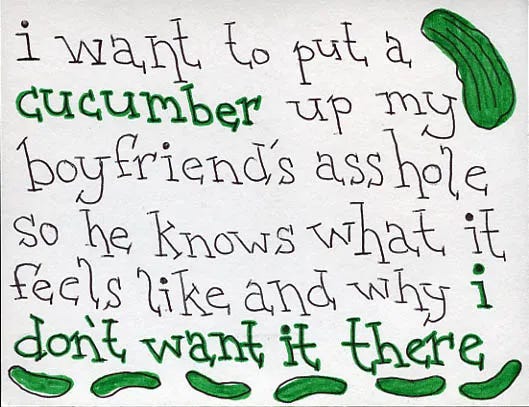 i want to put a
cucumber up my
boyfriend's asshole
so he knows what it
feels like and why i
don't want it there